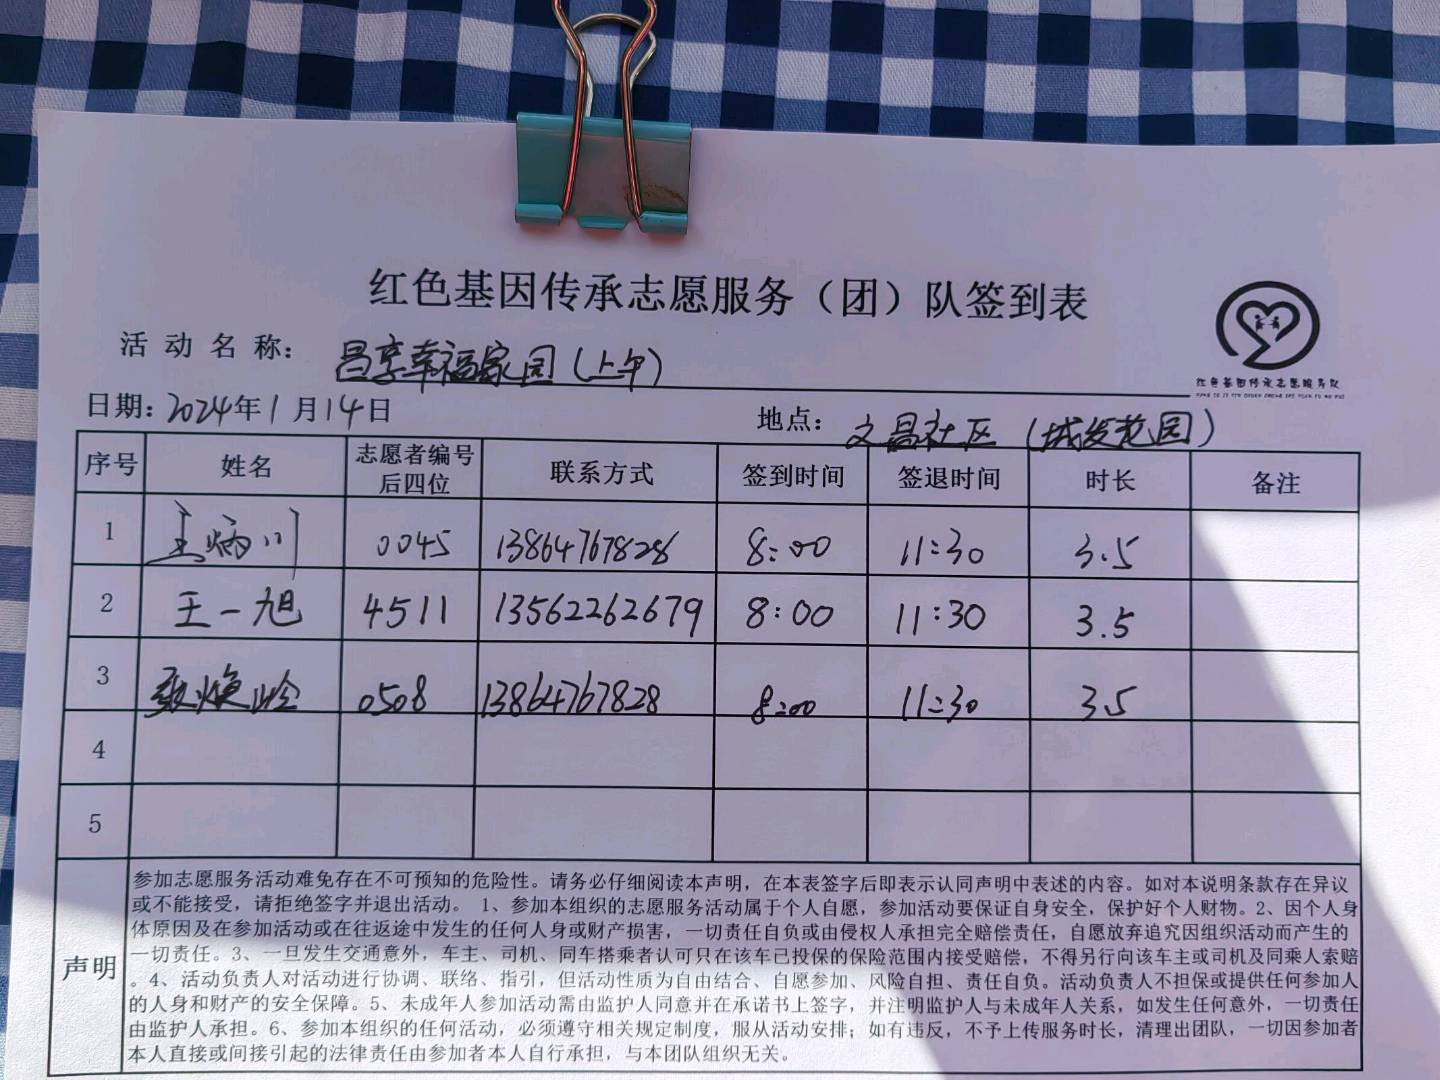 红色基因传承志愿服务（团）队签到表
活动名称：昌享幸福家园（上午）
红色基因传承志愿服务队
日期：2024年1月14日 地点：文昌社区（城发花园）
序号 姓名 志愿者编号后四位 联系方式 签到时间 签退时间 时长 备注
1 王炳川 0045 13864767828 8:00 11:30 3.5
2 王一旭 4511 13562262679 8:00 11:30 3.5
3 张焕玲 0508 13864767828 8:00 11:30 3.5
4
5
声明
参加志愿服务活动难免存在不可预知的危险性。请务必仔细阅读本声明，在本表签字后即表示认同声明中表述的内容。如对本说明条款存在异议
或不能接受，请拒绝签字并退出活动。 1、参加本组织的志愿服务活动属于个人自愿，参加活动要保证自身安全，保护好个人财物。2、因个人身
体原因及在参加活动或在往返途中发生的任何人身或财产损害，一切责任自负或由侵权人承担完全赔偿责任，自愿放弃追究因组织活动而产生的
一切责任。3、一旦发生交通意外，车主、司机、同车搭乘者认可只在该车已投保的保险范围内接受赔偿，不得另行向该车主或司机及同乘人索赔
。4、活动负责人对活动进行协调、联络、指引，但活动性质为自由结合、自愿参加、风险自担、责任自负。活动负责人不担保或提供任何参加人
的人身和财产的安全保障。5、未成年人参加活动需由监护人同意并在承诺书上签字，并注明监护人与未成年人关系，如发生任何意外，一切责任
由监护人承担。6、参加本组织的任何活动，必须遵守相关规定制度，服从活动安排；如有违反，不予上传服务时长，清理出团队，一切因参加者
本人直接或间接引起的法律责任由参加者本人自行承担，与本团队组织无关。